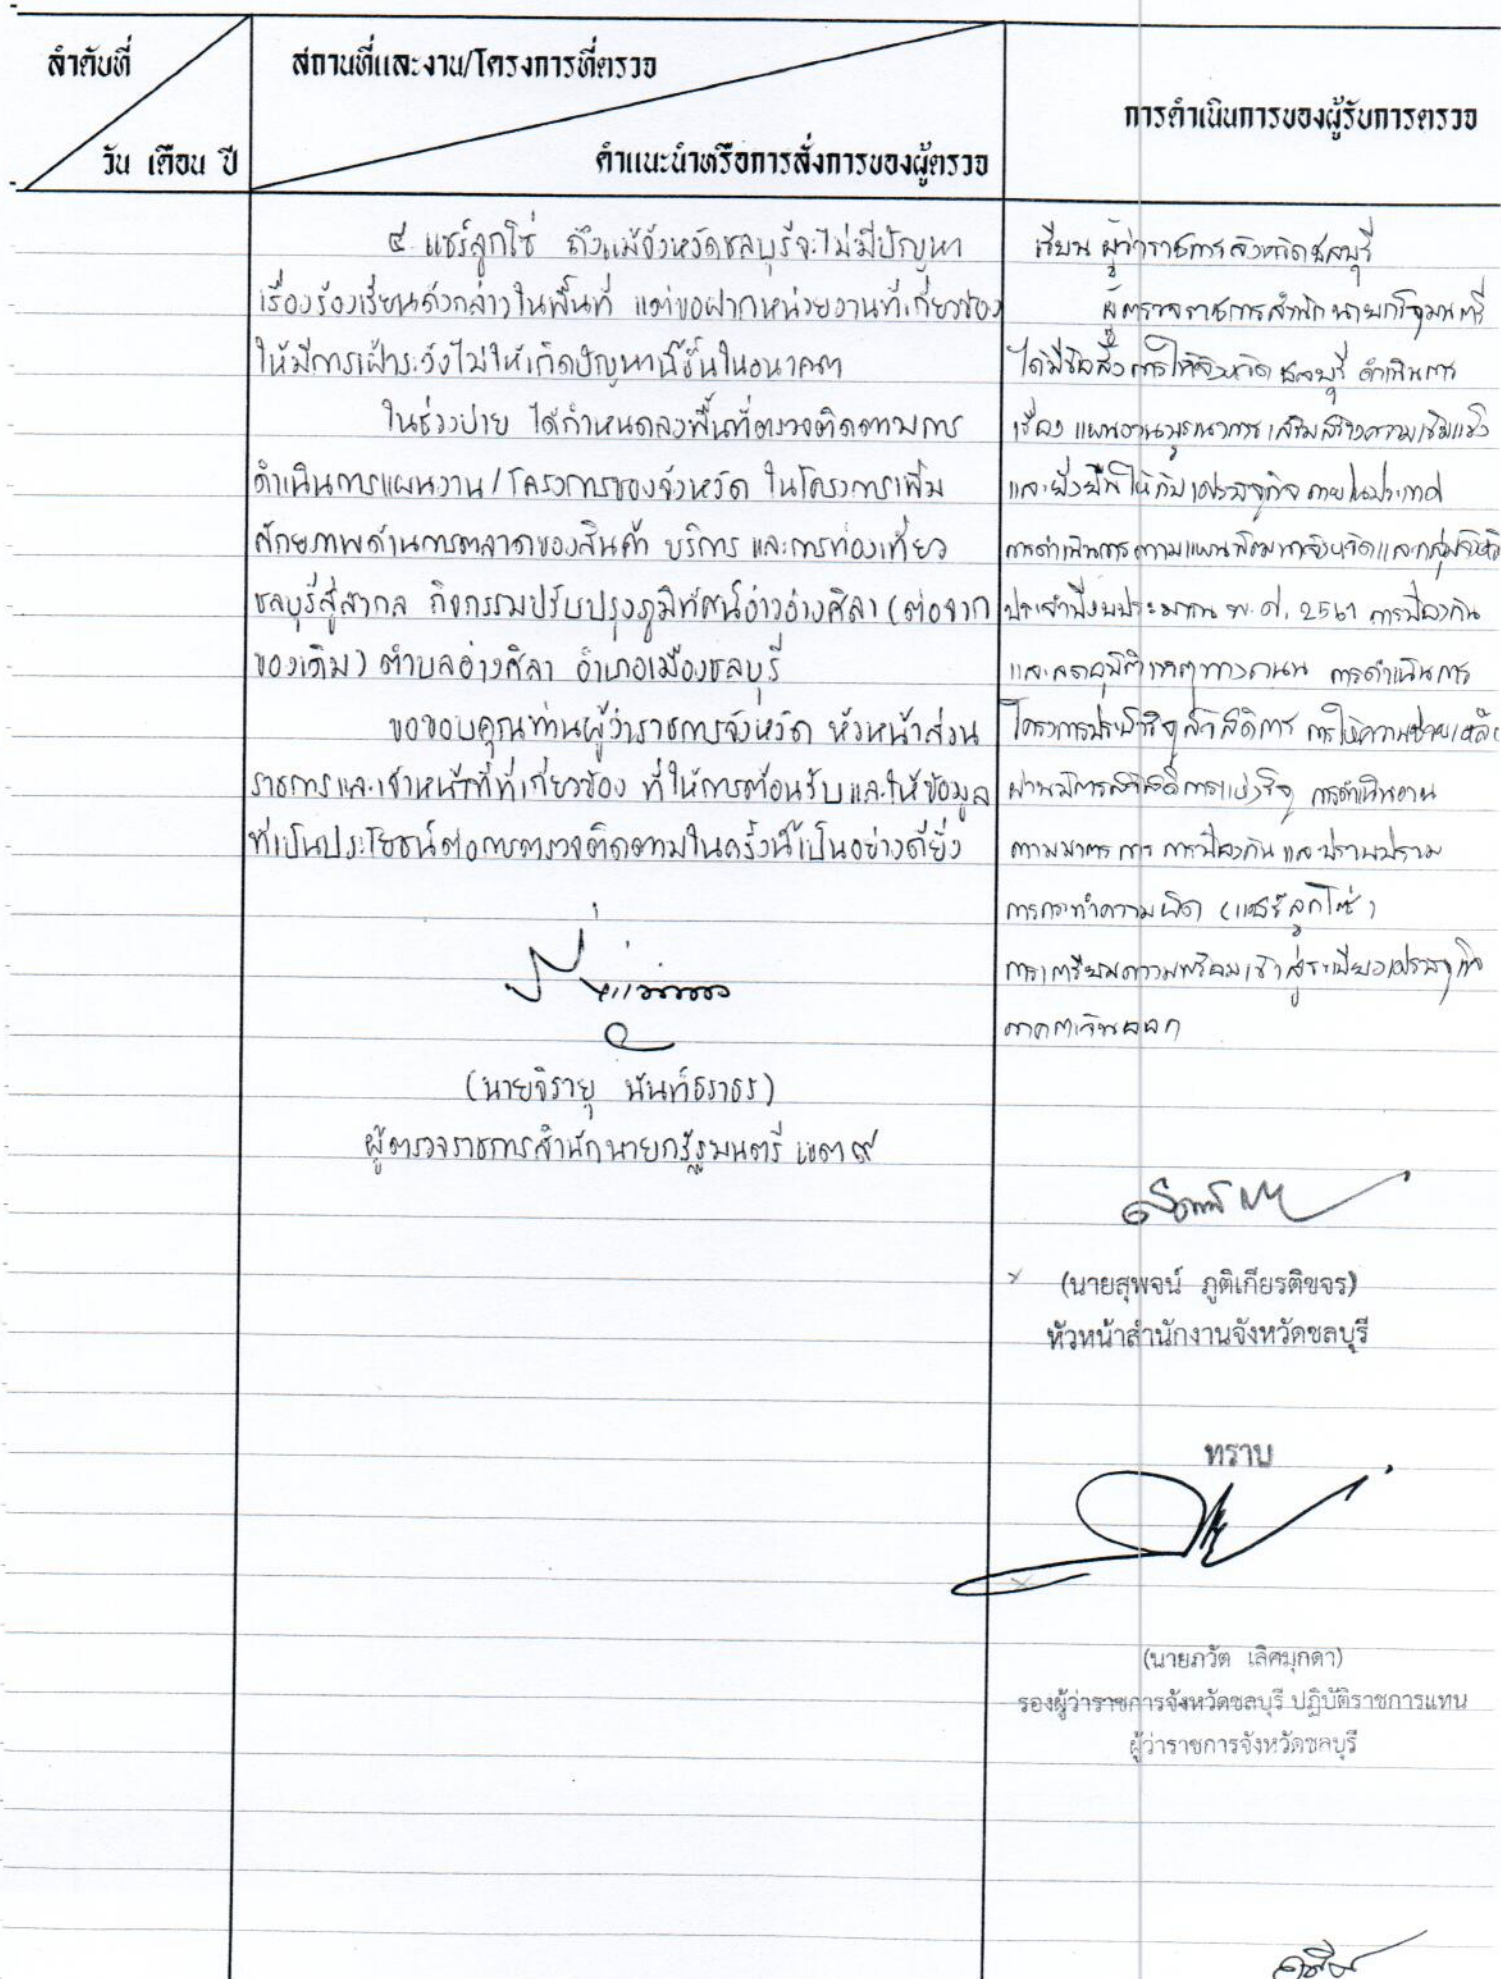 ลำดับที่
วัน เดือน ปี
สถานที่และงาน/โครงการที่ตรวจ
คำแนะนำหรือการสั่งการของผู้ตรวจ
การดำเนินการของผู้รับการตรวจ
๕. แชร์ลูกโซ่ ถึงแม้จังหวัดชลบุรีจะไม่มีปัญหา
เรื่องร้องเรียนดังกล่าวในพื้นที่ แต่ขอฝากหน่วยงานที่เกี่ยวข้อง
ให้มีการเฝ้าระวังไม่ให้เกิดปัญหานี้ขึ้นในอนาคต
ในช่วงบ่าย ได้กำหนดลงพื้นที่ตรวจติดตามการ
ดำเนินการแผนงาน/โครงการของจังหวัด ในโครงการเพิ่ม
ศักยภาพด้านการตลาดของสินค้า บริการ และการท่องเที่ยว
ชลบุรีสู่สากล กิจกรรมปรับปรุงภูมิทัศน์อ่าวอ่างศิลา (ต่อจาก
ของเดิม) ตำบลอ่างศิลา อำเภอเมืองชลบุรี
ขอขอบคุณท่านผู้ว่าราชการจังหวัด หัวหน้าส่วน
ราชการและเจ้าหน้าที่ที่เกี่ยวข้อง ที่ให้การต้อนรับและให้ข้อมูล
ที่เป็นประโยชน์ต่อการตรวจติดตามในครั้งนี้เป็นอย่างดียิ่ง
(นายจิรายุ นันท์ธราธร)
ผู้ตรวจราชการสำนักนายกรัฐมนตรี เขต ๙
เรียน ผู้ว่าราชการจังหวัดชลบุรี
ผู้ตรวจราชการสำนักนายกรัฐมนตรี
ได้มีข้อสั่งการให้จังหวัดชลบุรี ดำเนินการ
เรื่อง แผนงานบูรณาการเสริมสร้างความเข้มแข็ง
และยั่งยืนให้กับเศรษฐกิจภายในประเทศ
การดำเนินการตามแผนพัฒนาจังหวัดและกลุ่มจังหวัด
ประจำปีงบประมาณ พ.ศ. 2561 การป้องกัน
และลดอุบัติเหตุทางถนน การดำเนินการ
โครงการประชารัฐสวัสดิการ การให้ความช่วยเหลือ
ผ่านบัตรสวัสดิการแห่งรัฐ การดำเนินงาน
ตามมาตรการ การป้องกันและปราบปราม
การกระทำความผิด (แชร์ลูกโซ่)
การเตรียมความพร้อมเข้าสู่ระเบียงเศรษฐกิจ
ภาคตะวันออก
(นายสุพจน์ ภูติเกียรติขจร)
หัวหน้าสำนักงานจังหวัดชลบุรี
ทราบ
(นายภวัต เลิศมุกดา)
รองผู้ว่าราชการจังหวัดชลบุรี ปฏิบัติราชการแทน
ผู้ว่าราชการจังหวัดชลบุรี